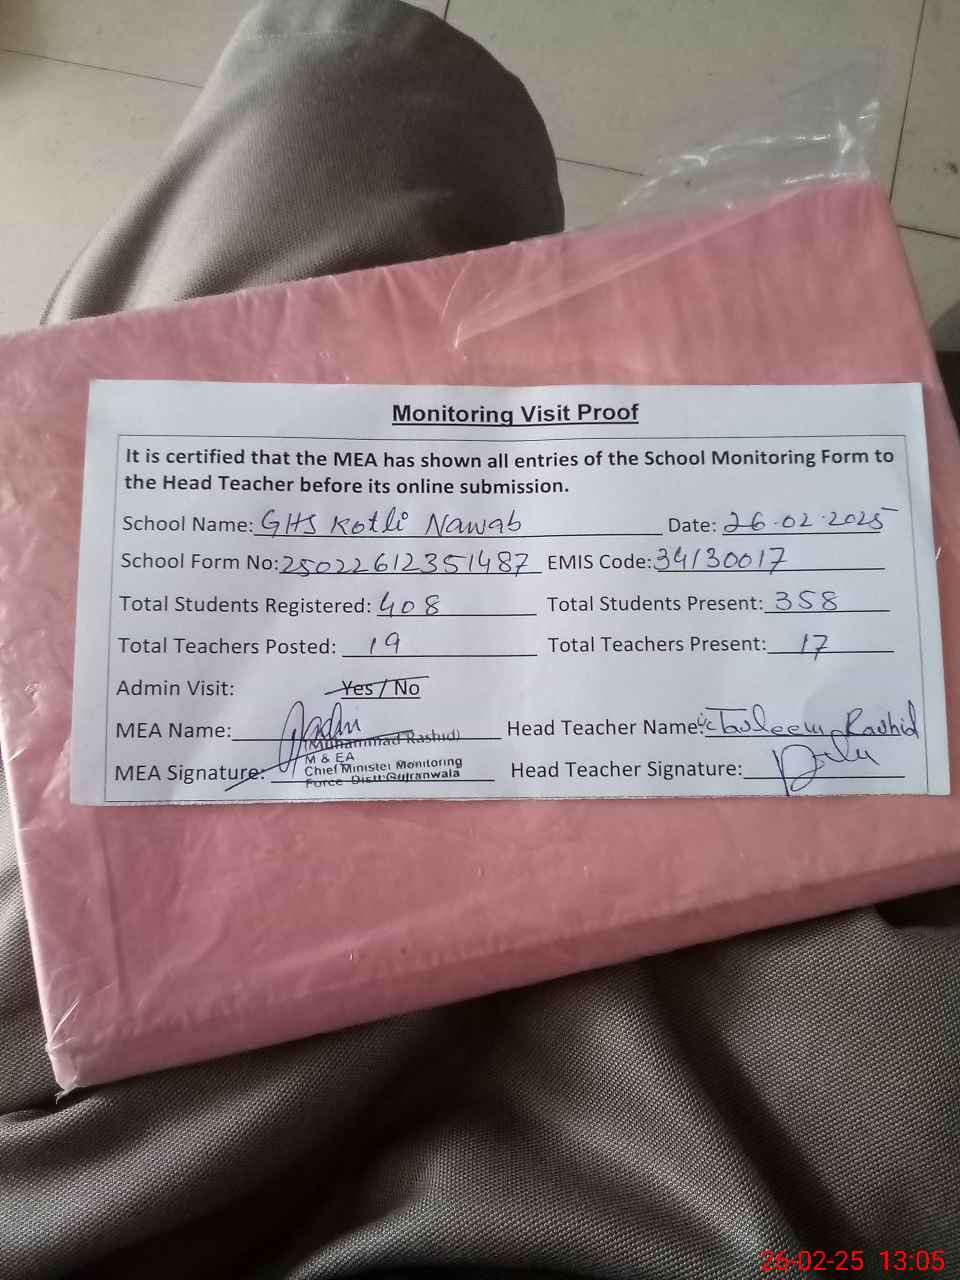 Monitoring Visit Proof
It is certified that the MEA has shown all entries of the School Monitoring Form to
the Head Teacher before its online submission.
School Name: GHS Kotli Nawab Date: 26-02-2025
School Form No: 25022612351487 EMIS Code: 34130017
Total Students Registered: 408 Total Students Present: 358
Total Teachers Posted: 19 Total Teachers Present: 17
Admin Visit: Yes / No
MEA Name: Head Teacher Name: I/C Tasleem Rashid
(Muhammad Rashid)
M & EA
MEA Signature: Chief Minister Monitoring Head Teacher Signature:
Force Distt Gujranwala
26-02-25 13:05